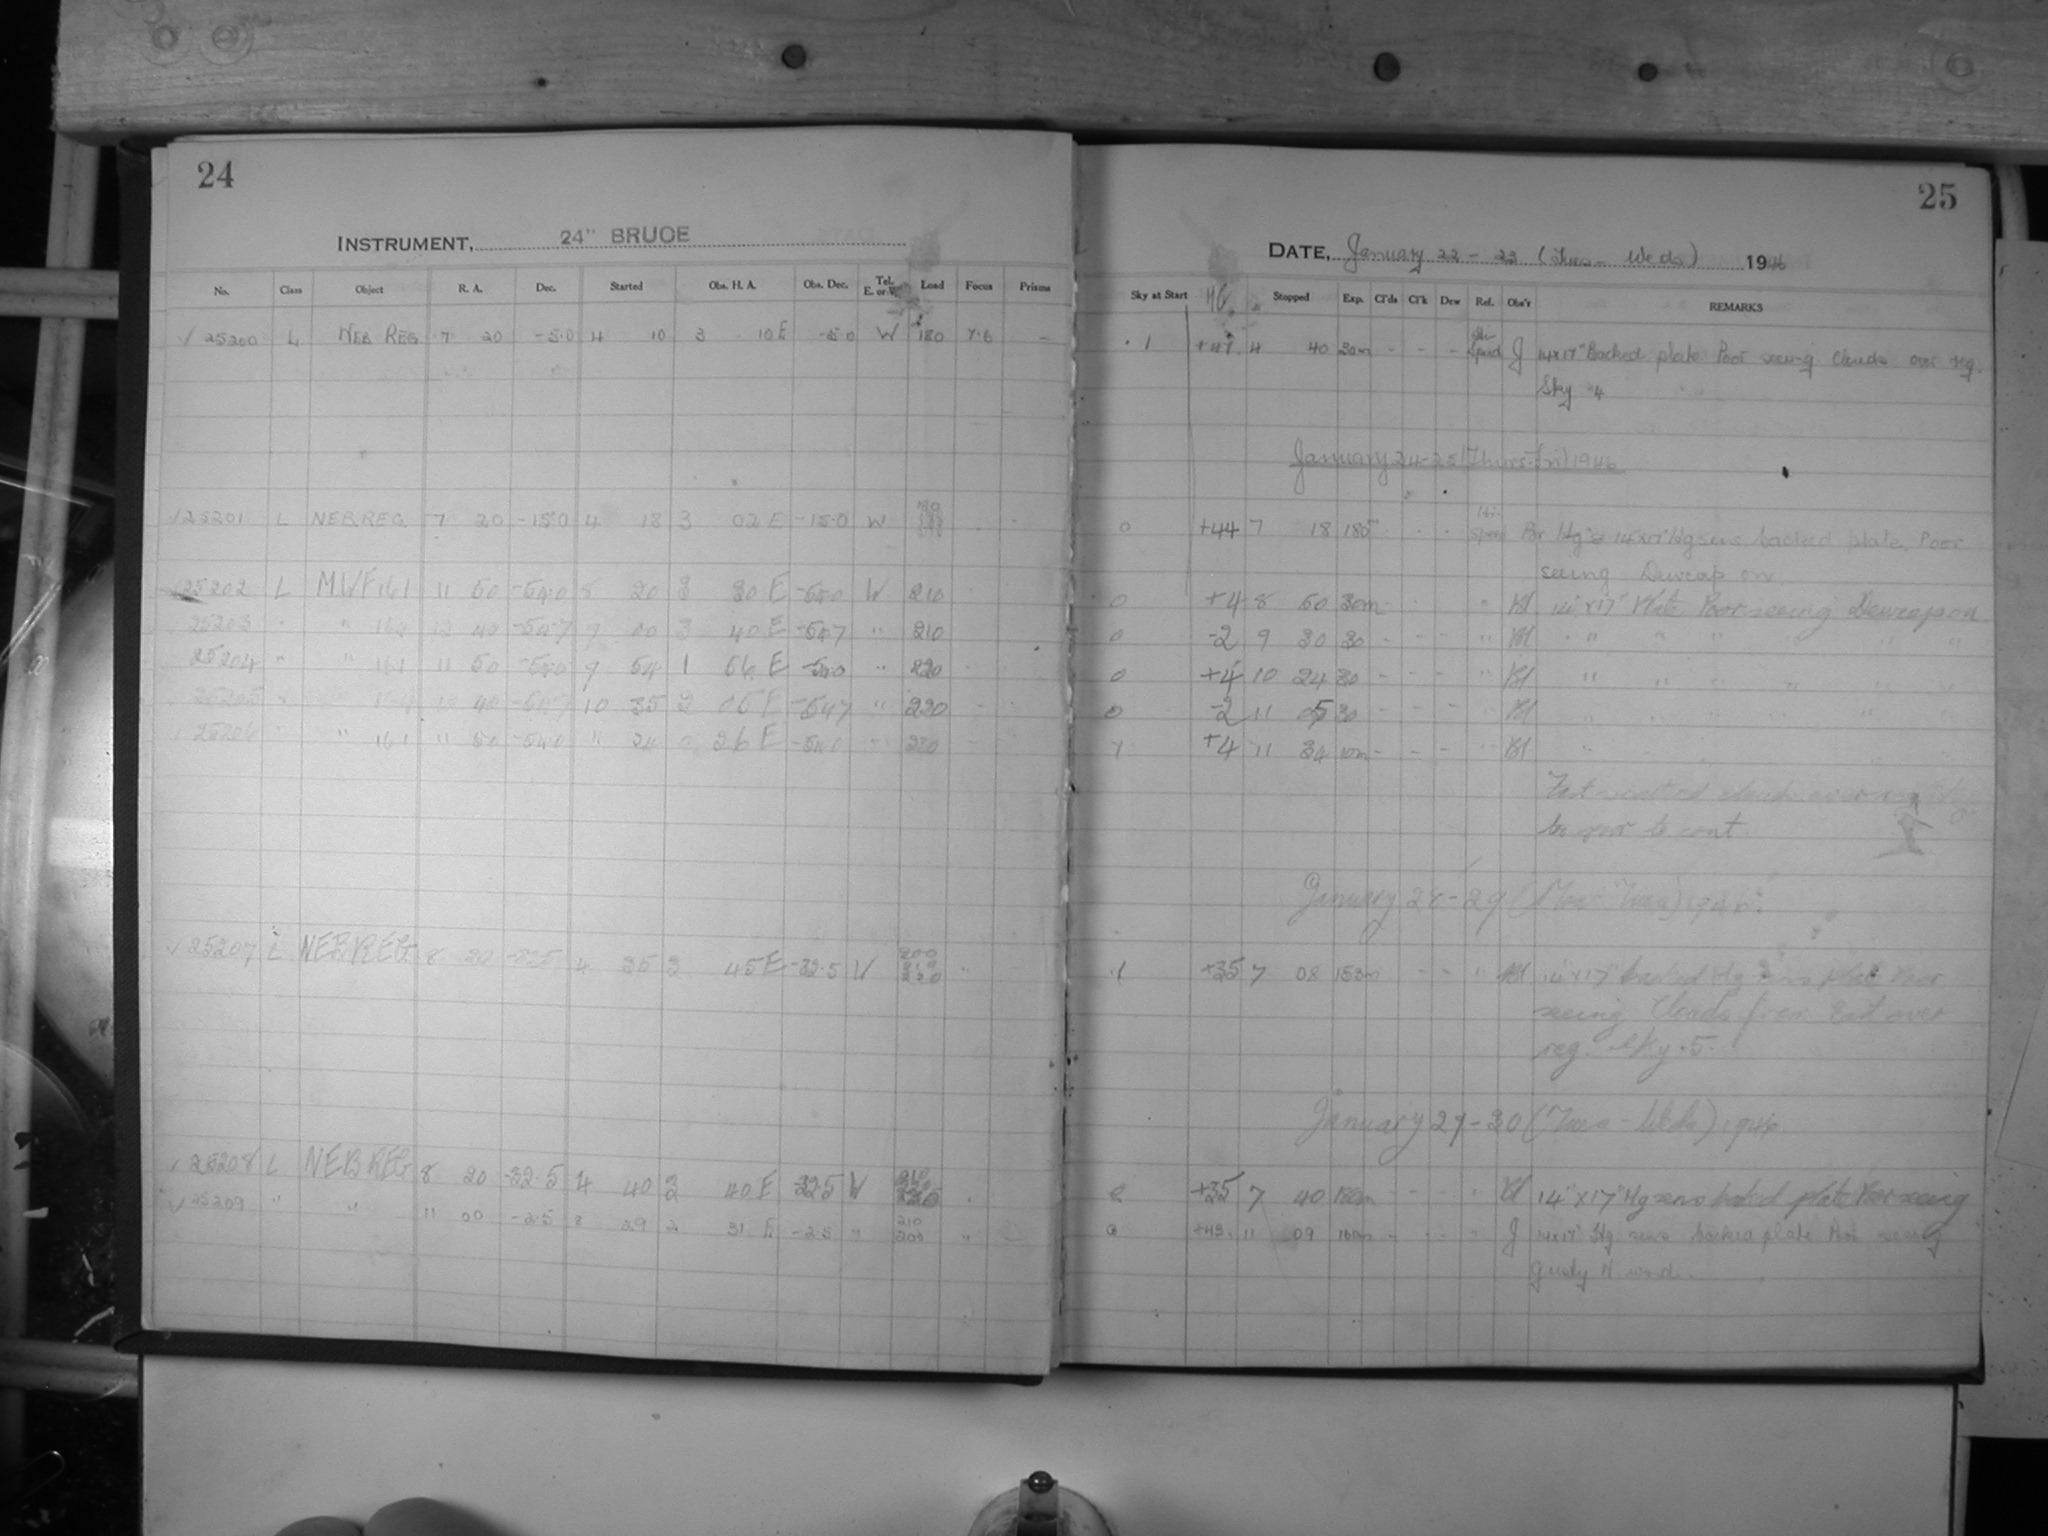 24
INSTRUMENT, 24" BRUCE
No. Class Object R. A. Dec. Started Obs. H. A. Obs. Dec. Tel. E. or W. Load Focus Prisms
√ 25200 L NEB REG 7 20 -5.0 4 10 3 10 E -5.0 W 180 7.6 -
√ 25201 L NEB REG 7 20 -15.0 4 18 3 02 E -15.0 W
√ 25202 L MWF 161 11 50 -54.0 5 20 3 30 E W 210
25203 " " 164 12 40 -54.7 9 00 3 40 E -54.7 " 210
25204 " " 161 11 50 -54.0 9 54 1 56 E -54.0 " 220
25205 " " 164 12 40 -54.7 10 35 2 05 E -54.7 " 220
25206 " " 161 11 50 -54.0 " 24 0 26 E -54.0 220
√ 25207 L NEB REG 8 20 -32.5 4 35 3 45 E -32.5 W 200 220
√ 25208 L NEB REG 8 20 -32.5 4 40 3 40 E -32.5 W 210
√ 25209 " " 11 00 -2.5 8 29 2 31 E -2.5 " 210 200 "
25
DATE, January 22 - 23 (Tues - Weds) 1946
Sky at Start Stopped Exp. Cl'ds Cl'k Dew Ref. Obs'r REMARKS
.1 +47 4 40 30m - - - Speed J 14x17" Backed plate Poor seeing Clouds over reg.
Sky 4
January 24-25 (Thurs-Fri) 1946
0 +44 7 18 180 14x17" Hg sens backed plate. Poor
seeing Dewcap on
0 +4 8 50 30m - - - " 14" x 17" Plate Poor seeing Dewcap on
0 -2 9 30 30 - - - " " " "
0 +4 10 24 30 - - - " " " "
0 -2 11 05 30 - - - " " " "
+4 11 34 10m - - -
to cont.
January 28-29 (Mon - Tues) 1946
.1 +35 7 08 153m - - " 14" x 17" backed Hg sens plate Poor
seeing Clouds from East over
reg. Sky .5
January 29-30 (Tues - Weds) 1946
+35 7 40 180m 14" x 17" Hg sens backed plate Poor seeing
0 +43 11 09 160m J 14x17" Hg sens backed plate Poor seeing
Gusty N. wind.